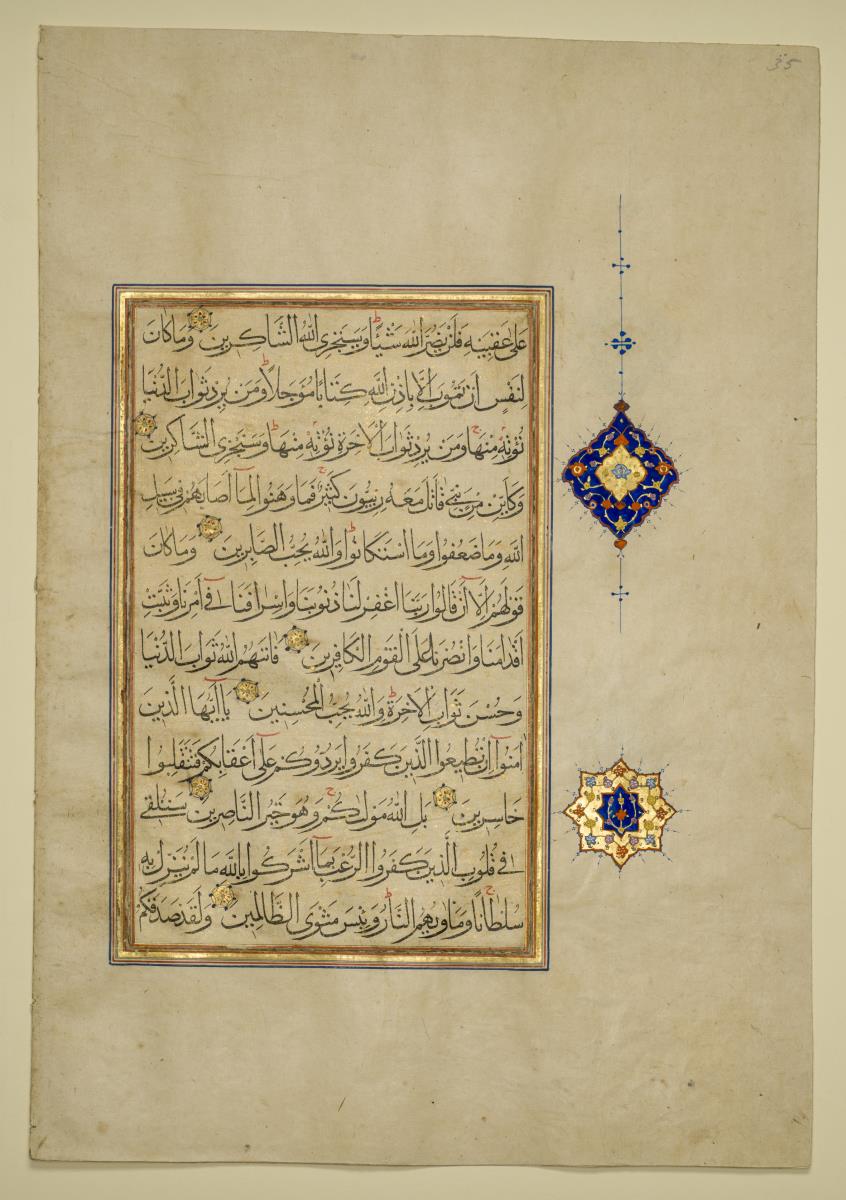 35
عَلَىٰ عَقِبَيْهِ فَلَنْ يَضُرَّ اللهَ شَيْئًا وَسَيَجْزِى اللهُ الشَّاكِرِينَ وَمَا كَانَ
لِنَفْسٍ اَنْ تَمُوتَ اِلَّا بِاِذْنِ اللهِ كِتَابًا مُؤَجَّلًا وَمَنْ يُرِدْ ثَوَابَ الدُّنْيَا
نُؤْتِهِ مِنْهَا وَمَنْ يُرِدْ ثَوَابَ الْاٰخِرَةِ نُؤْتِهِ مِنْهَا وَسَنَجْزِى الشَّاكِرِينَ
وَكَاَيِّنْ مِنْ نَبِىٍّ قَاتَلَ مَعَهُ رِبِّيُّونَ كَثِيرٌ فَمَا وَهَنُوا لِمَا اَصَابَهُمْ فِى سَبِيلِ
اللهِ وَمَا ضَعُفُوا وَمَا اسْتَكَانُوا وَاللهُ يُحِبُّ الصَّابِرِينَ وَمَا كَانَ
قَوْلَهُمْ اِلَّا اَنْ قَالُوا رَبَّنَا اغْفِرْ لَنَا ذُنُوبَنَا وَاِسْرَافَنَا فِى اَمْرِنَا وَثَبِّتْ
اَقْدَامَنَا وَانْصُرْنَا عَلَى الْقَوْمِ الْكَافِرِينَ فَاٰتٰىهُمُ اللهُ ثَوَابَ الدُّنْيَا
وَحُسْنَ ثَوَابِ الْاٰخِرَةِ وَاللهُ يُحِبُّ الْمُحْسِنِينَ يَا اَيُّهَا الَّذِينَ
اٰمَنُوا اِنْ تُطِيعُوا الَّذِينَ كَفَرُوا يَرُدُّوكُمْ عَلَىٰ اَعْقَابِكُمْ فَتَنْقَلِبُوا
خَاسِرِينَ بَلِ اللهُ مَوْلٰىكُمْ وَهُوَ خَيْرُ النَّاصِرِينَ سَنُلْقِى
فِى قُلُوبِ الَّذِينَ كَفَرُوا الرُّعْبَ بِمَا اَشْرَكُوا بِاللهِ مَا لَمْ يُنَزِّلْ بِهِ
سُلْطَانًا وَمَاْوٰيهُمُ النَّارُ وَبِئْسَ مَثْوَى الظَّالِمِينَ وَلَقَدْ صَدَقَكُمُ